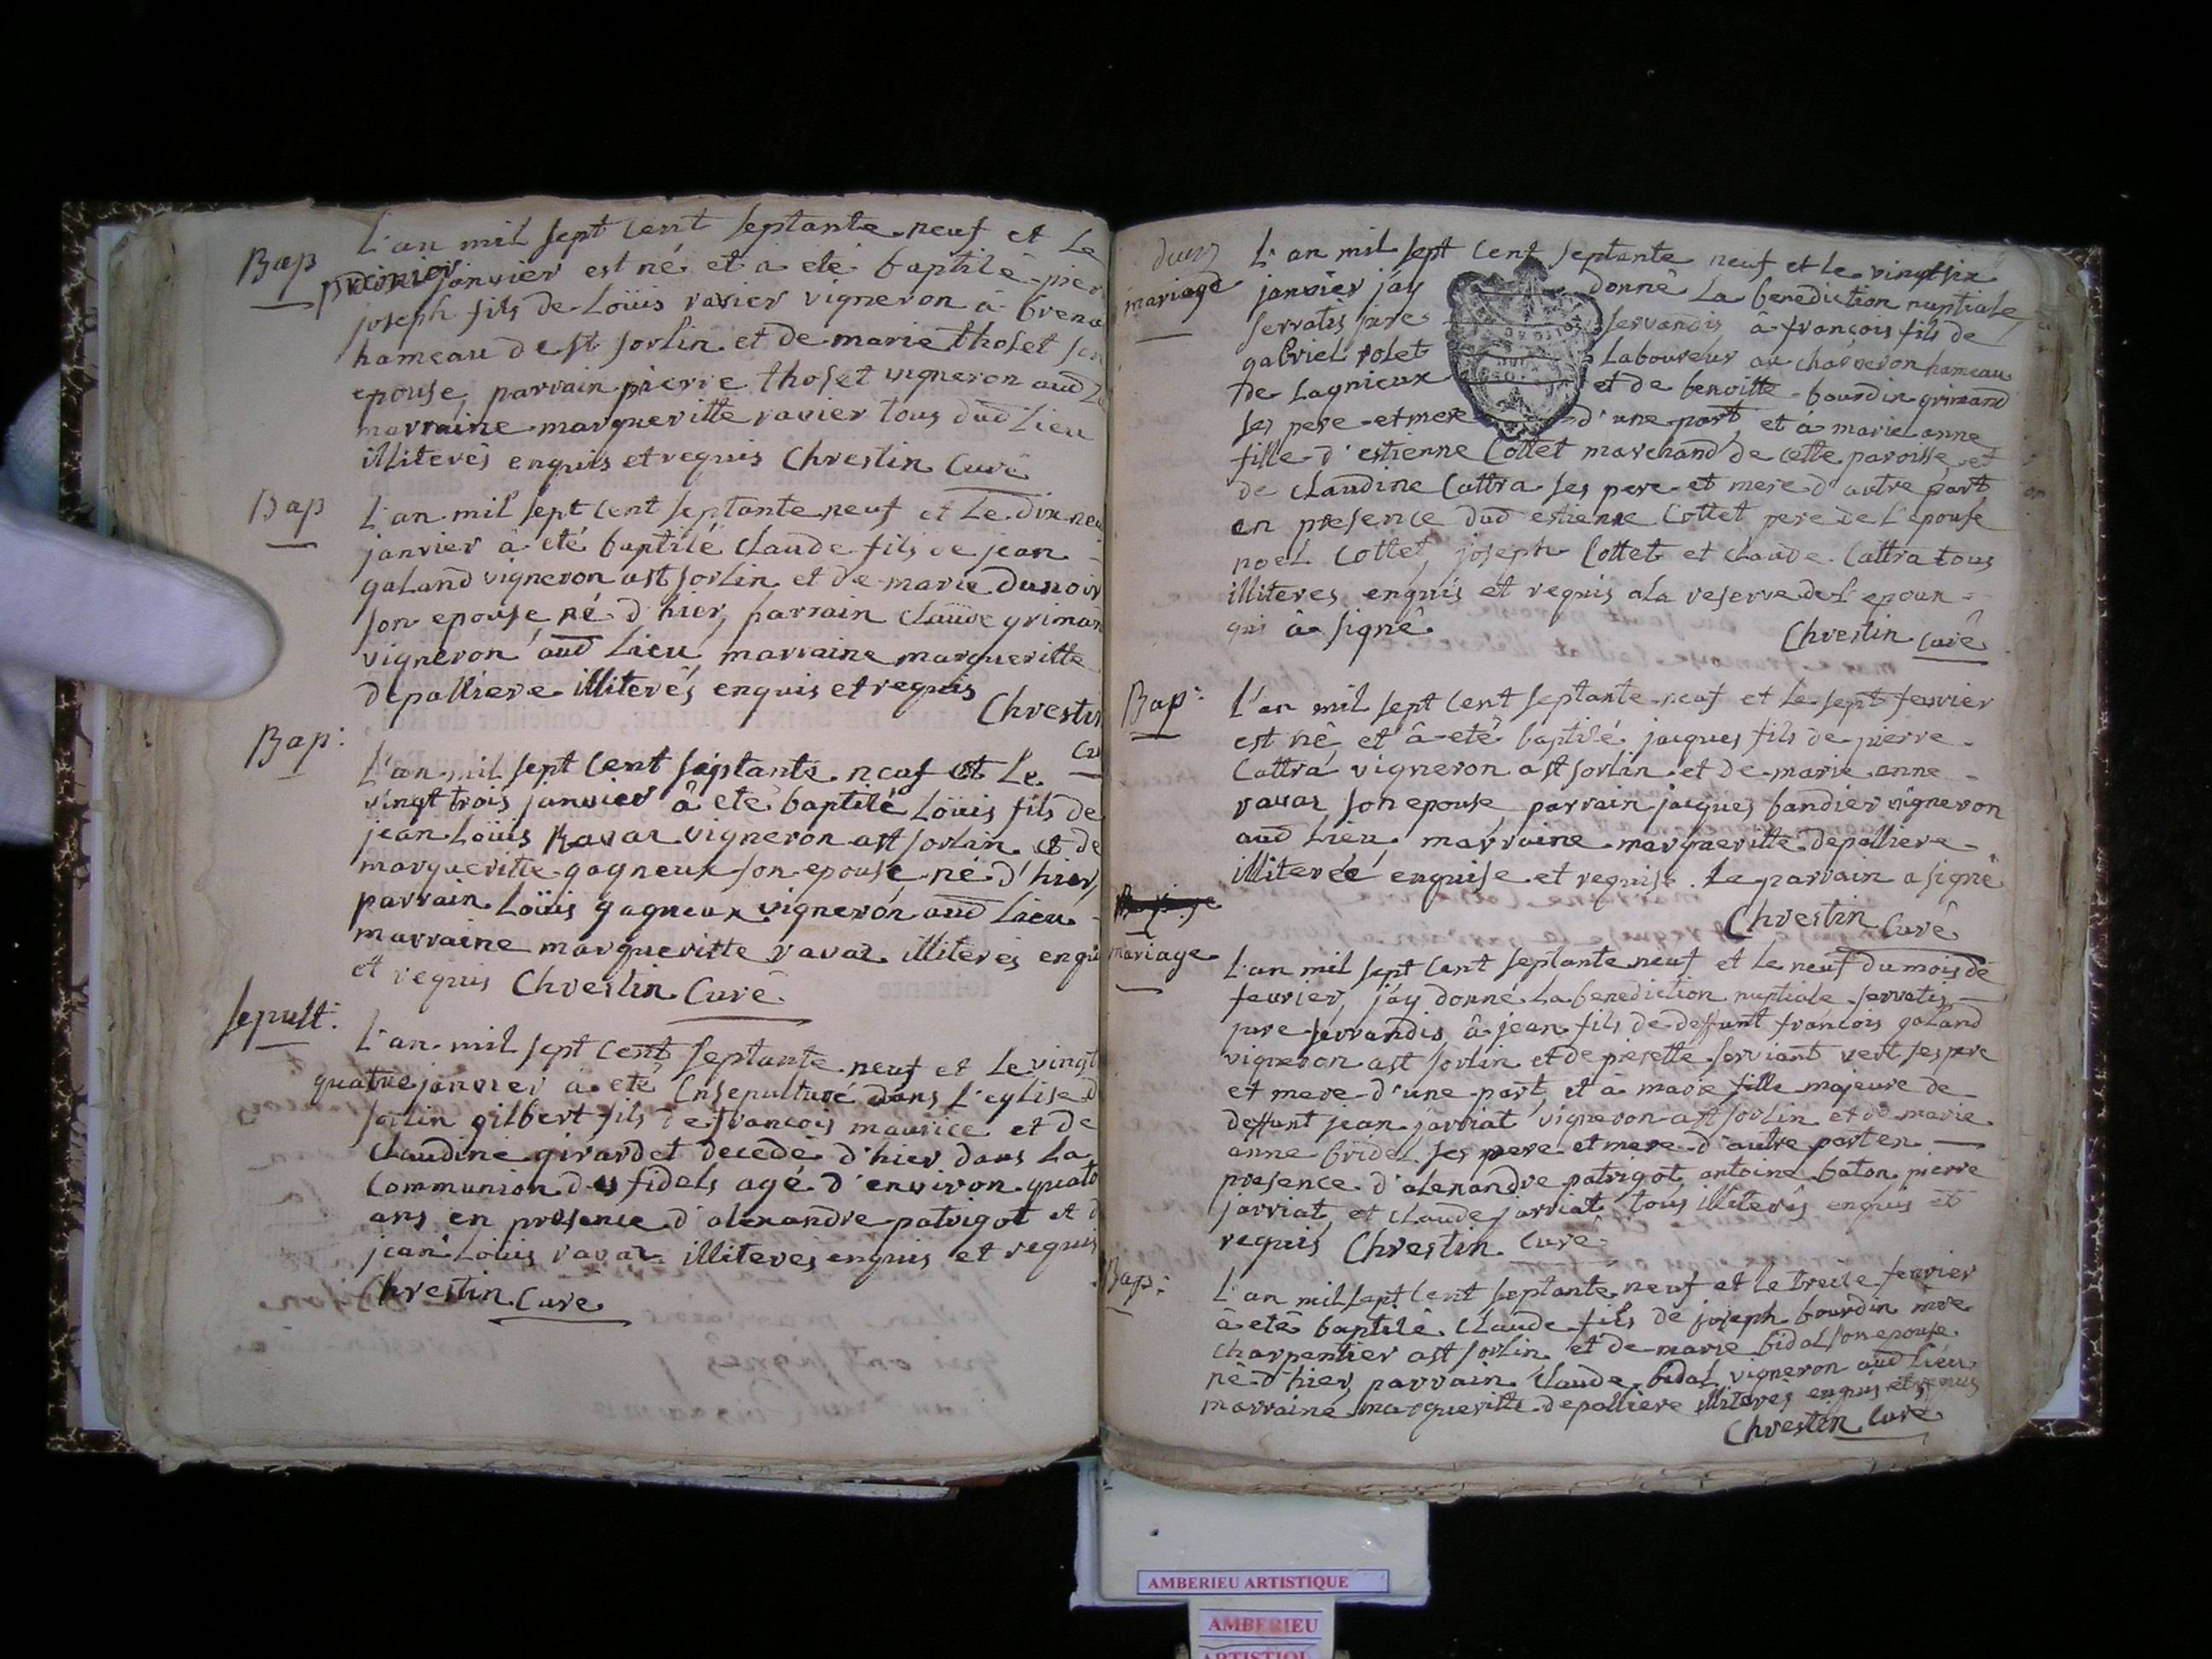 L'an mil sept cent septante neuf et Le
Bap
premier janvier est né et a eté baptisé pier
joseph fils de Loüis ravier vigneron â brena
hameau de st sorlin et de marie tholet son
epouse, parrain pierre tholet vigneron aud
marraine margueritte ravier tous dud Lieu
illiterés enquis et requis Chrestin Curé
Bap
L'an mil sept cent septante neuf et Le dix neu
janvier a eté baptisé Claude fils de jean
galand vigneron a st sorlin et de marie dunoir
son epouse né d'hier, parrain Claude griman
vigneron aud Lieu, marraine margueritte
depalliere illiterés enquis et requis
Chrestin
Cu
Bap:
L'an mil sept Cent septante neuf et Le
vingt trois janvier â eté baptisé Loüis fils de
jean Loüis Ravaz vigneron a st sorlin et de
margueritte gagneux son epouse né d'hier,
parrain Loüis gagneux vigneron aud Lieu
marraine margueritte ravaz illiterés enqui
et requis Chrestin Curé
sepult:
L'an mil sept cent septante neuf et Le vingt
quatre janvier a eté Ensepulturé dans L'eglise d
sorlin gilbert fils de francois maurice et de
Claudine girardet decedé d'hier dans La
Communion des fidels agé d'environ quato
ans en presence d'alexandre patrigot et d
jean Loüis ravaz illiterés enquis et requis
Chrestin Curé
L'an mil sept Cent septante neuf et le vingt six
mariage
janvier jay donné La benediction nuptiale
servatis jure servandis â françois fils de
gabriel rolet Laboureur au charveron hameau
de Lagnieux et de benoitte bourdin grimand
ses pere et mere d'une part, et â marie anne
fille d'estienne Cottet marchand de cette paroisse et
de claudine Cattra ses pere et mere d'autre part
en presence dud estienne Cottet pere de L'epouse
noel Cottet, joseph Cottet et claude Cattra tous
illiteres enquis et requis a la reserve de L'epoux
qui â signé Chrestin Curé
Bap:
L'an mil sept Cent septante neuf et Le sept fevrier
est né et â eté baptisé jacques fils de pierre
Cattra vigneron a st sorlin et de marie anne
ravaz son epouse, parrain jacques bandier vigneron
aud Lieu, marraine margueritte depalliere
illiterée enquise et requise. Le parrain a signé
Chrestin Curé
mariage
L'an mil sept Cent septante neuf et Le neuf du mois de
fevrier, j'ay donné La benediction nuptiale servatis
jure servandis â jean fils de deffunt francois galand
vigneron a st sorlin et de pierette serviant vert ses pere
et mere d'une part, et â marie fille majeure de
deffunt jean jarriat vigneron a st sorlin et de marie
anne bridel ses pere et mere d'autre part en
presence d'alexandre patrigot, antoine baton pierre
jarriat, et claude jarriat tous illiterés enquis et
requis Chrestin Curé
Bap:
L'an mil sept Cent septante neuf et le treise fevrier
a eté baptisé Claude fils de joseph bourdin mre
charpentier a st sorlin et de marie bidal son epouse
né d'hier, parrain Claude bidal vigneron aud Lieu
marraine margueritte depalliere illiterés enquis et requis
Chrestin Curé
AMBERIEU ARTISTIQUE
AMBERIEU
ARTISTIQU